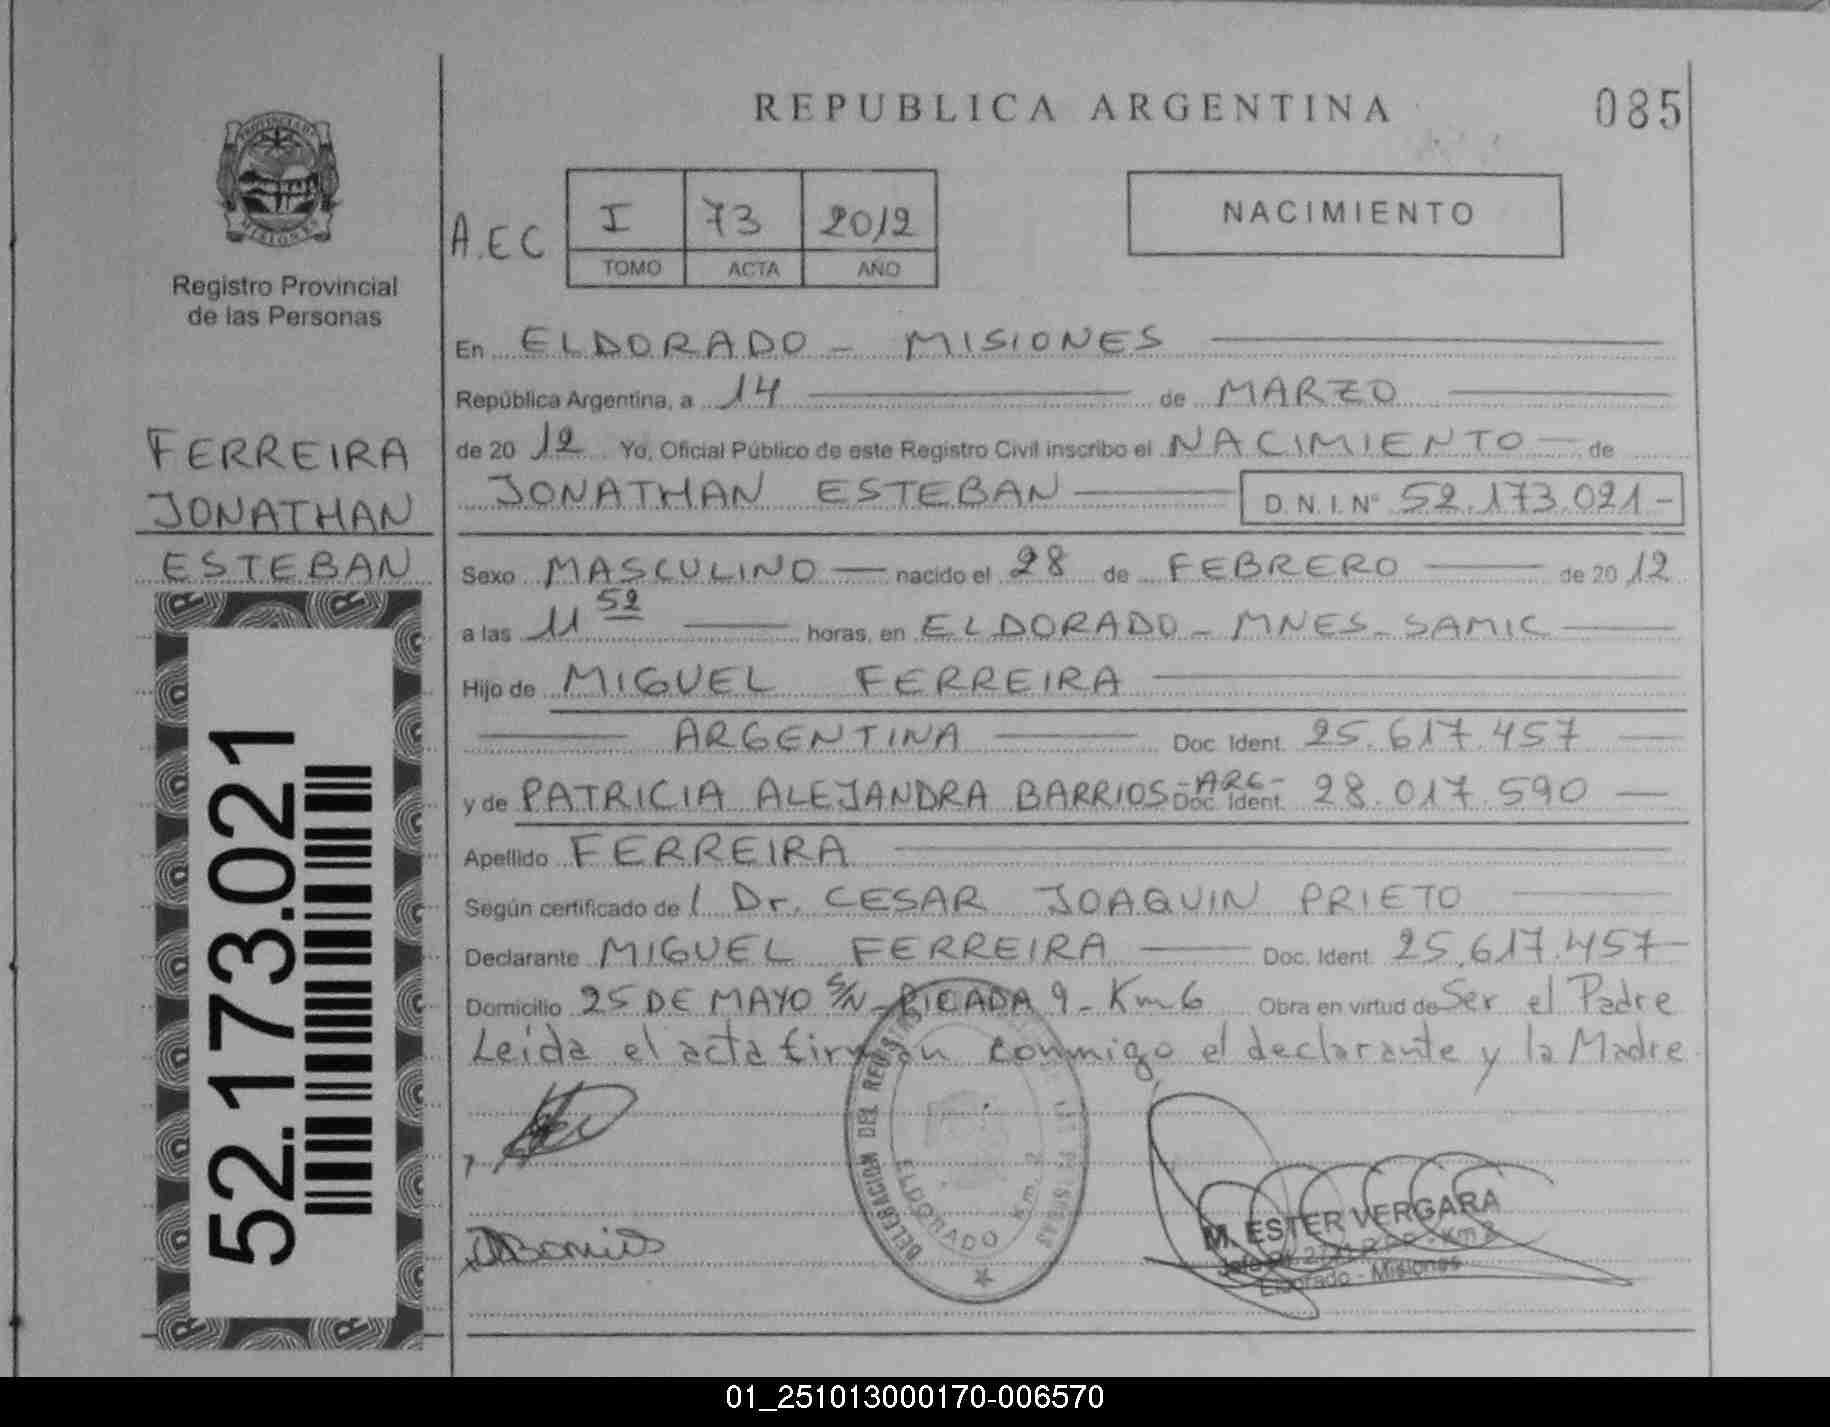 REPUBLICA ARGENTINA
085
PROVINCIA DE
MISIONES
Registro Provincial
de las Personas
A.E.C
I 73 2012
TOMO ACTA AÑO
NACIMIENTO
FERREIRA
JONATHAN
ESTEBAN
52.173.021
En ELDORADO - MISIONES
República Argentina, a 14 de MARZO
de 20 12 Yo, Oficial Público de este Registro Civil inscribo el NACIMIENTO de
JONATHAN ESTEBAN D.N.I.Nº 52.173.021-
Sexo MASCULINO nacido el 28 de FEBRERO de 20 12
a las 11 52 horas, en ELDORADO - MNES - SAMIC
Hijo de MIGUEL FERREIRA
ARGENTINA Doc. Ident. 25.617.457
y de PATRICIA ALEJANDRA BARRIOS -ARG- Doc. Ident. 28.017.590
Apellido FERREIRA
Según certificado de / Dr. CESAR JOAQUIN PRIETO
Declarante MIGUEL FERREIRA Doc. Ident. 25.617.457
Domicilio 25 DE MAYO S/N - PICADA 9 - Km 6 Obra en virtud de Ser el Padre
Leida el acta firman conmigo el declarante y la Madre
DELEGACION DEL REGISTRO
ELDORADO Km. 2
M. ESTER VERGARA
Km 2
Eldorado - Misiones
01_251013000170-006570